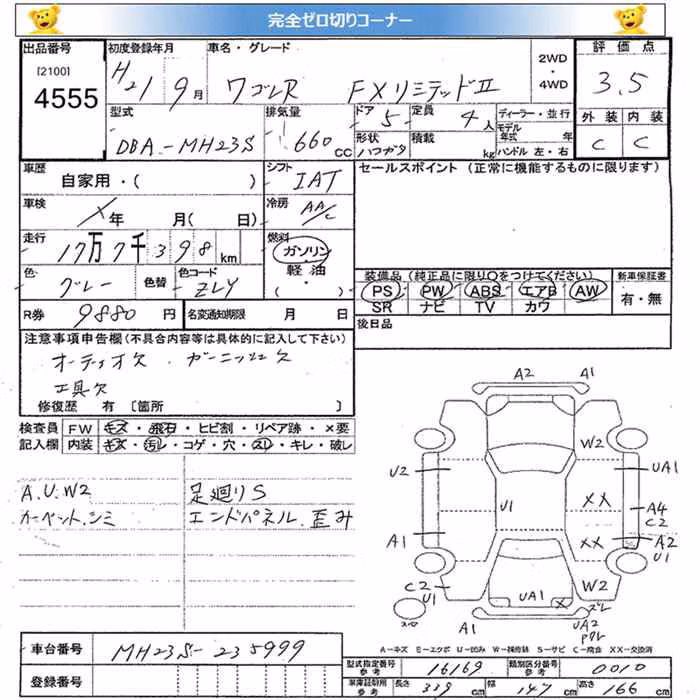 完全ゼロ切りコーナー
出品番号
[2100]
4555
初度登録年月
H21 9月
車名・グレード
ワゴンR FXリミテッドⅡ
2WD
・
4WD
評価点
3.5
外装 内装
C C
型式
DBA-MH23S
排気量
660 cc
ドア 5
定員 4人
形状 ハコガタ
積載 kg
ディーラー・並行
モデル年式 年
ハンドル 左・右
車歴
自家用・( )
シフト
IAT
セールスポイント (正常に機能するものに限ります)
車検
X年 月( 日)
冷房
AA/C
走行
17万7千398km
燃料
ガソリン
軽油
( )
色
グレー
色替
色コード
ZLY
装備品 (純正品に限り○をつけてください)
PS PW ABS エアB AW
SR ナビ TV カワ
新車保証書
有・無
R券 9880円
名変通知期限 月 日
後日品
注意事項申告欄(不具合内容等は具体的に記入して下さい)
オーディオ欠 ガーニッシュ欠
工具欠
修復歴 有 [箇所 ]
検査員
記入欄
FW キズ・飛石・ヒビ割・リペア跡・×要
内装 キズ・汚レ・コゲ・穴・スレ・キレ・破レ
A.U.W2
カーペット.シミ
足廻りS
エンドパネル.歪み
A2 A1
W2
U2 UA1
U1 XX
A4
C2
A1 XX A2
U1
C2
U1
UA1 X W2
A1
ズレ
UA2
A-キズ E-エクボ U-凹み W-補修跡 S-サビ C-腐食 XX-交換済
車台番号 MH23S-235999
登録番号
型式指定番号
参考
16169
類別区分番号
参考
0010
車庫証明用
参考
長さ 339cm 幅 147cm 高さ 166cm